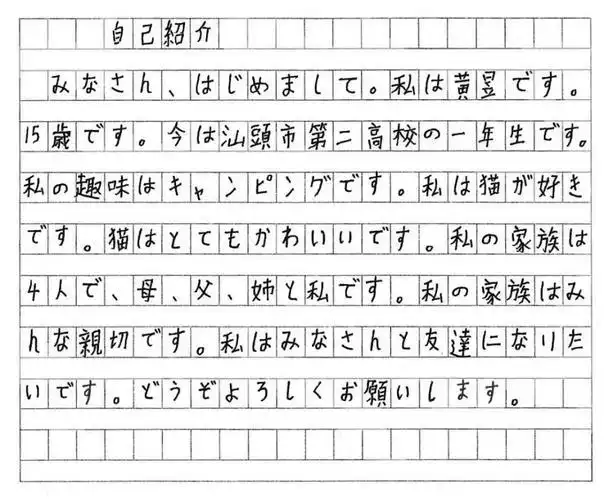 自己紹介
みなさん、はじめまして。私は黄昱です。
15歳です。今は汕頭市第二高校の一年生です。
私の趣味はキャンピングです。私は猫が好き
です。猫はとてもかわいいです。私の家族は
4人で、母、父、姉と私です。私の家族はみ
んな親切です。私はみなさんと友達になりた
いです。どうぞよろしくお願いします。